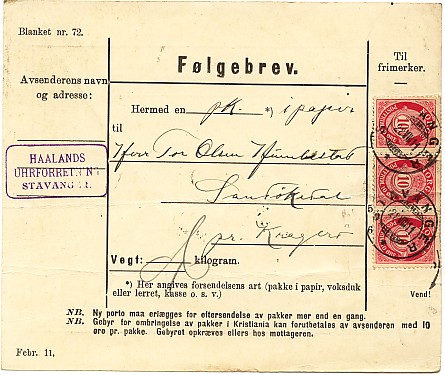 Blanket nr. 72.
Avsenderens navn
og adresse:
HAALANDS
STAVANGER.
Følgebrev.
Hermed en pk. *) i papir
til
Herr Tor Olsen Humlestad
Sandökedal
pr. Kragerø
Vegt: kilogram.
*) Her angives forsendelsens art (pakke i papir, voksduk
eller lerret, kasse o. s. v.)
Til
frimerker.
10
10
10
STAVANGER
Vend!
NB. Ny porto maa erlægges for eftersendelse av pakker mer end en gang.
NB. Gebyr for ombringelse av pakker i Kristiania kan forutbetales av avsenderen med 10
øre pr. pakke. Gebyret opkræves ellers hos mottageren.
Febr. 11,